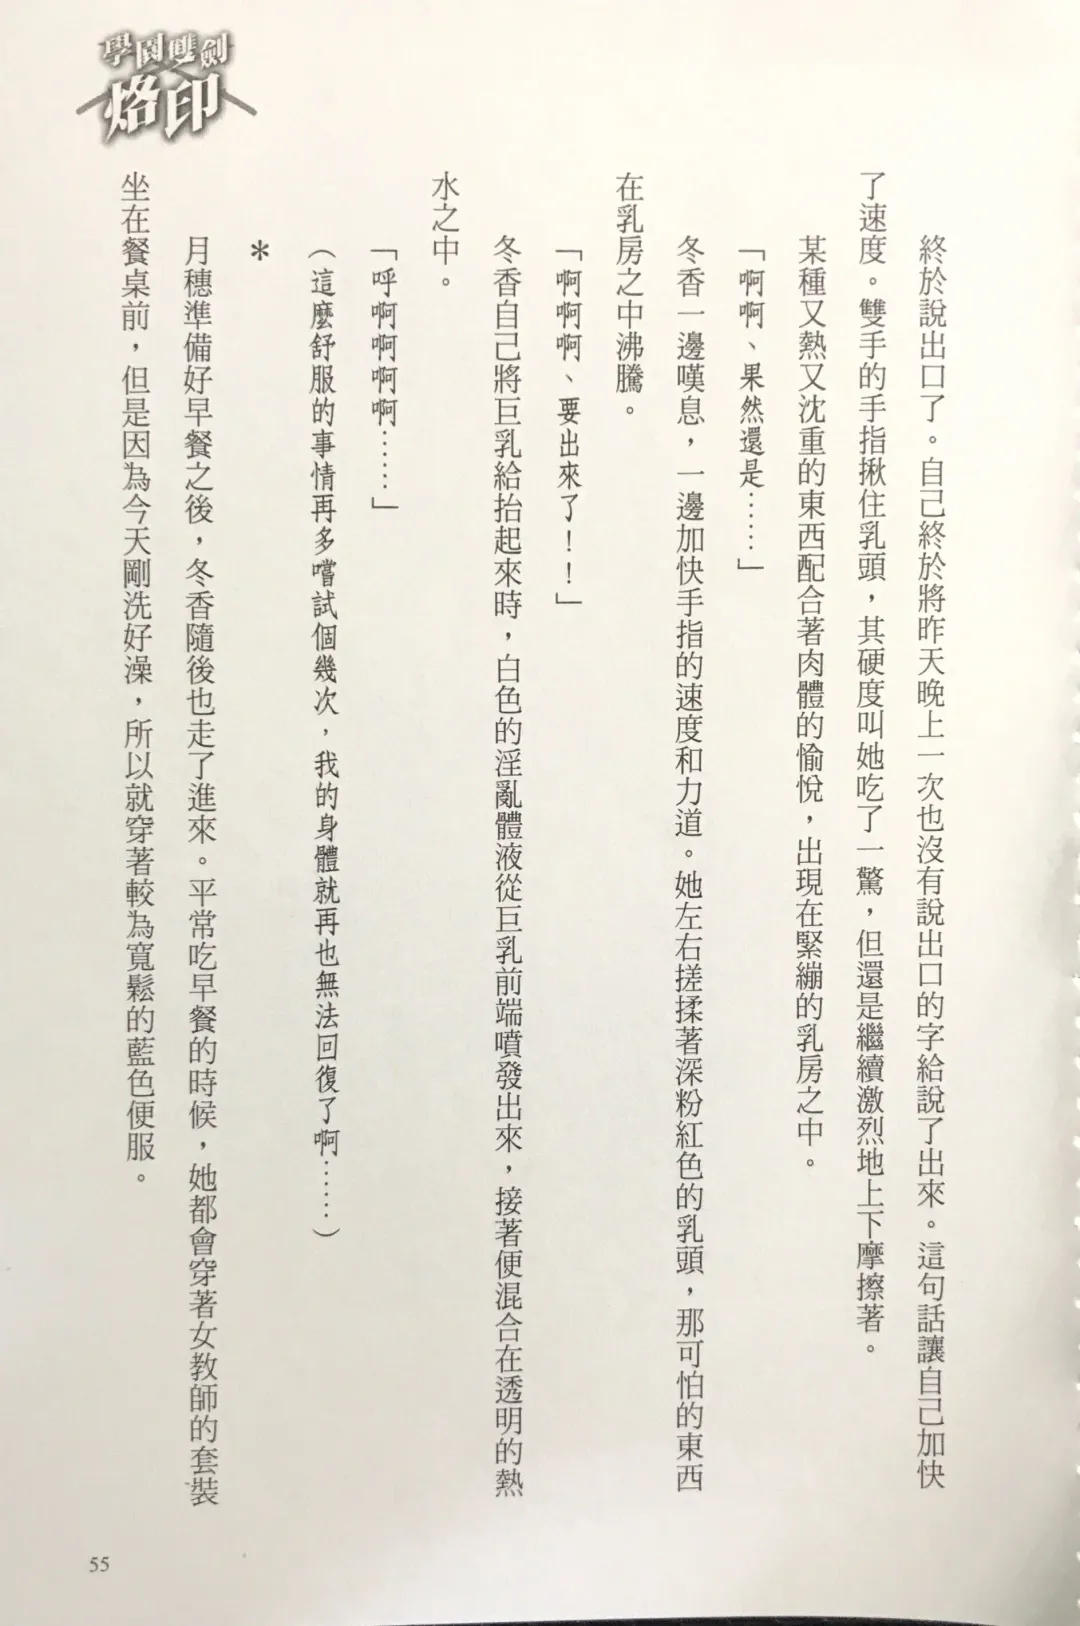 學園雙劍
烙印
終於說出口了。自己終於將昨天晚上一次也沒有說出口的字給說了出來。這句話讓自己加快
了速度。雙手的手指揪住乳頭，其硬度叫她吃了一驚，但還是繼續激烈地上下摩擦著。
某種又熱又沈重的東西配合著肉體的愉悅，出現在緊繃的乳房之中。
「啊啊、果然還是……」
冬香一邊嘆息，一邊加快手指的速度和力道。她左右搓揉著深粉紅色的乳頭，那可怕的東西
在乳房之中沸騰。
「啊啊啊、要出來了！！」
冬香自己將巨乳給抬起來時，白色的淫亂體液從巨乳前端噴發出來，接著便混合在透明的熱
水之中。
「呼啊啊啊啊……」
（這麼舒服的事情再多嚐試個幾次，我的身體就再也無法回復了啊……）
＊
月穗準備好早餐之後，冬香隨後也走了進來。平常吃早餐的時候，她都會穿著女教師的套裝
坐在餐桌前，但是因為今天剛洗好澡，所以就穿著較為寬鬆的藍色便服。
55